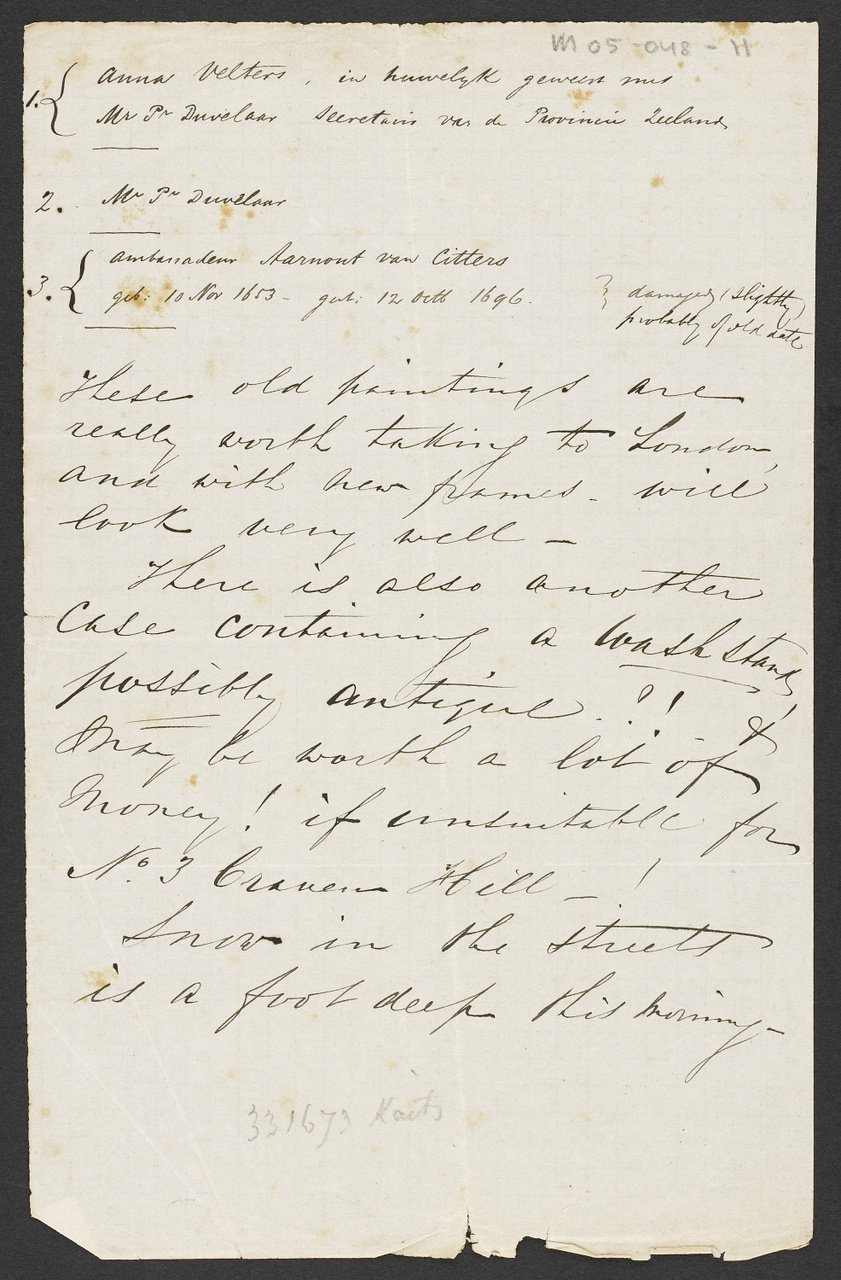 M 05-048-H
1. { Anna Velters, in huwelyk geweest met
Mr Pr Duvelaar Secretaris van de Provincie Zeeland
2. Mr Pr Duvelaar
3. { ambassadeur Aarnout van Citters
geb: 10 Nov 1653 - 12 Octb 1696. } damaged (slightly)
probably of old date
These old paintings are
really worth taking to London,
and with new frames - will
look very well -
There is also another
Case containing a wash stand,
possibly antique..?! &
May be worth a lot of
Money! if unsuitable for
No. 3 Craven Hill - !
Snow in the streets
is a foot deep this morning -
331673